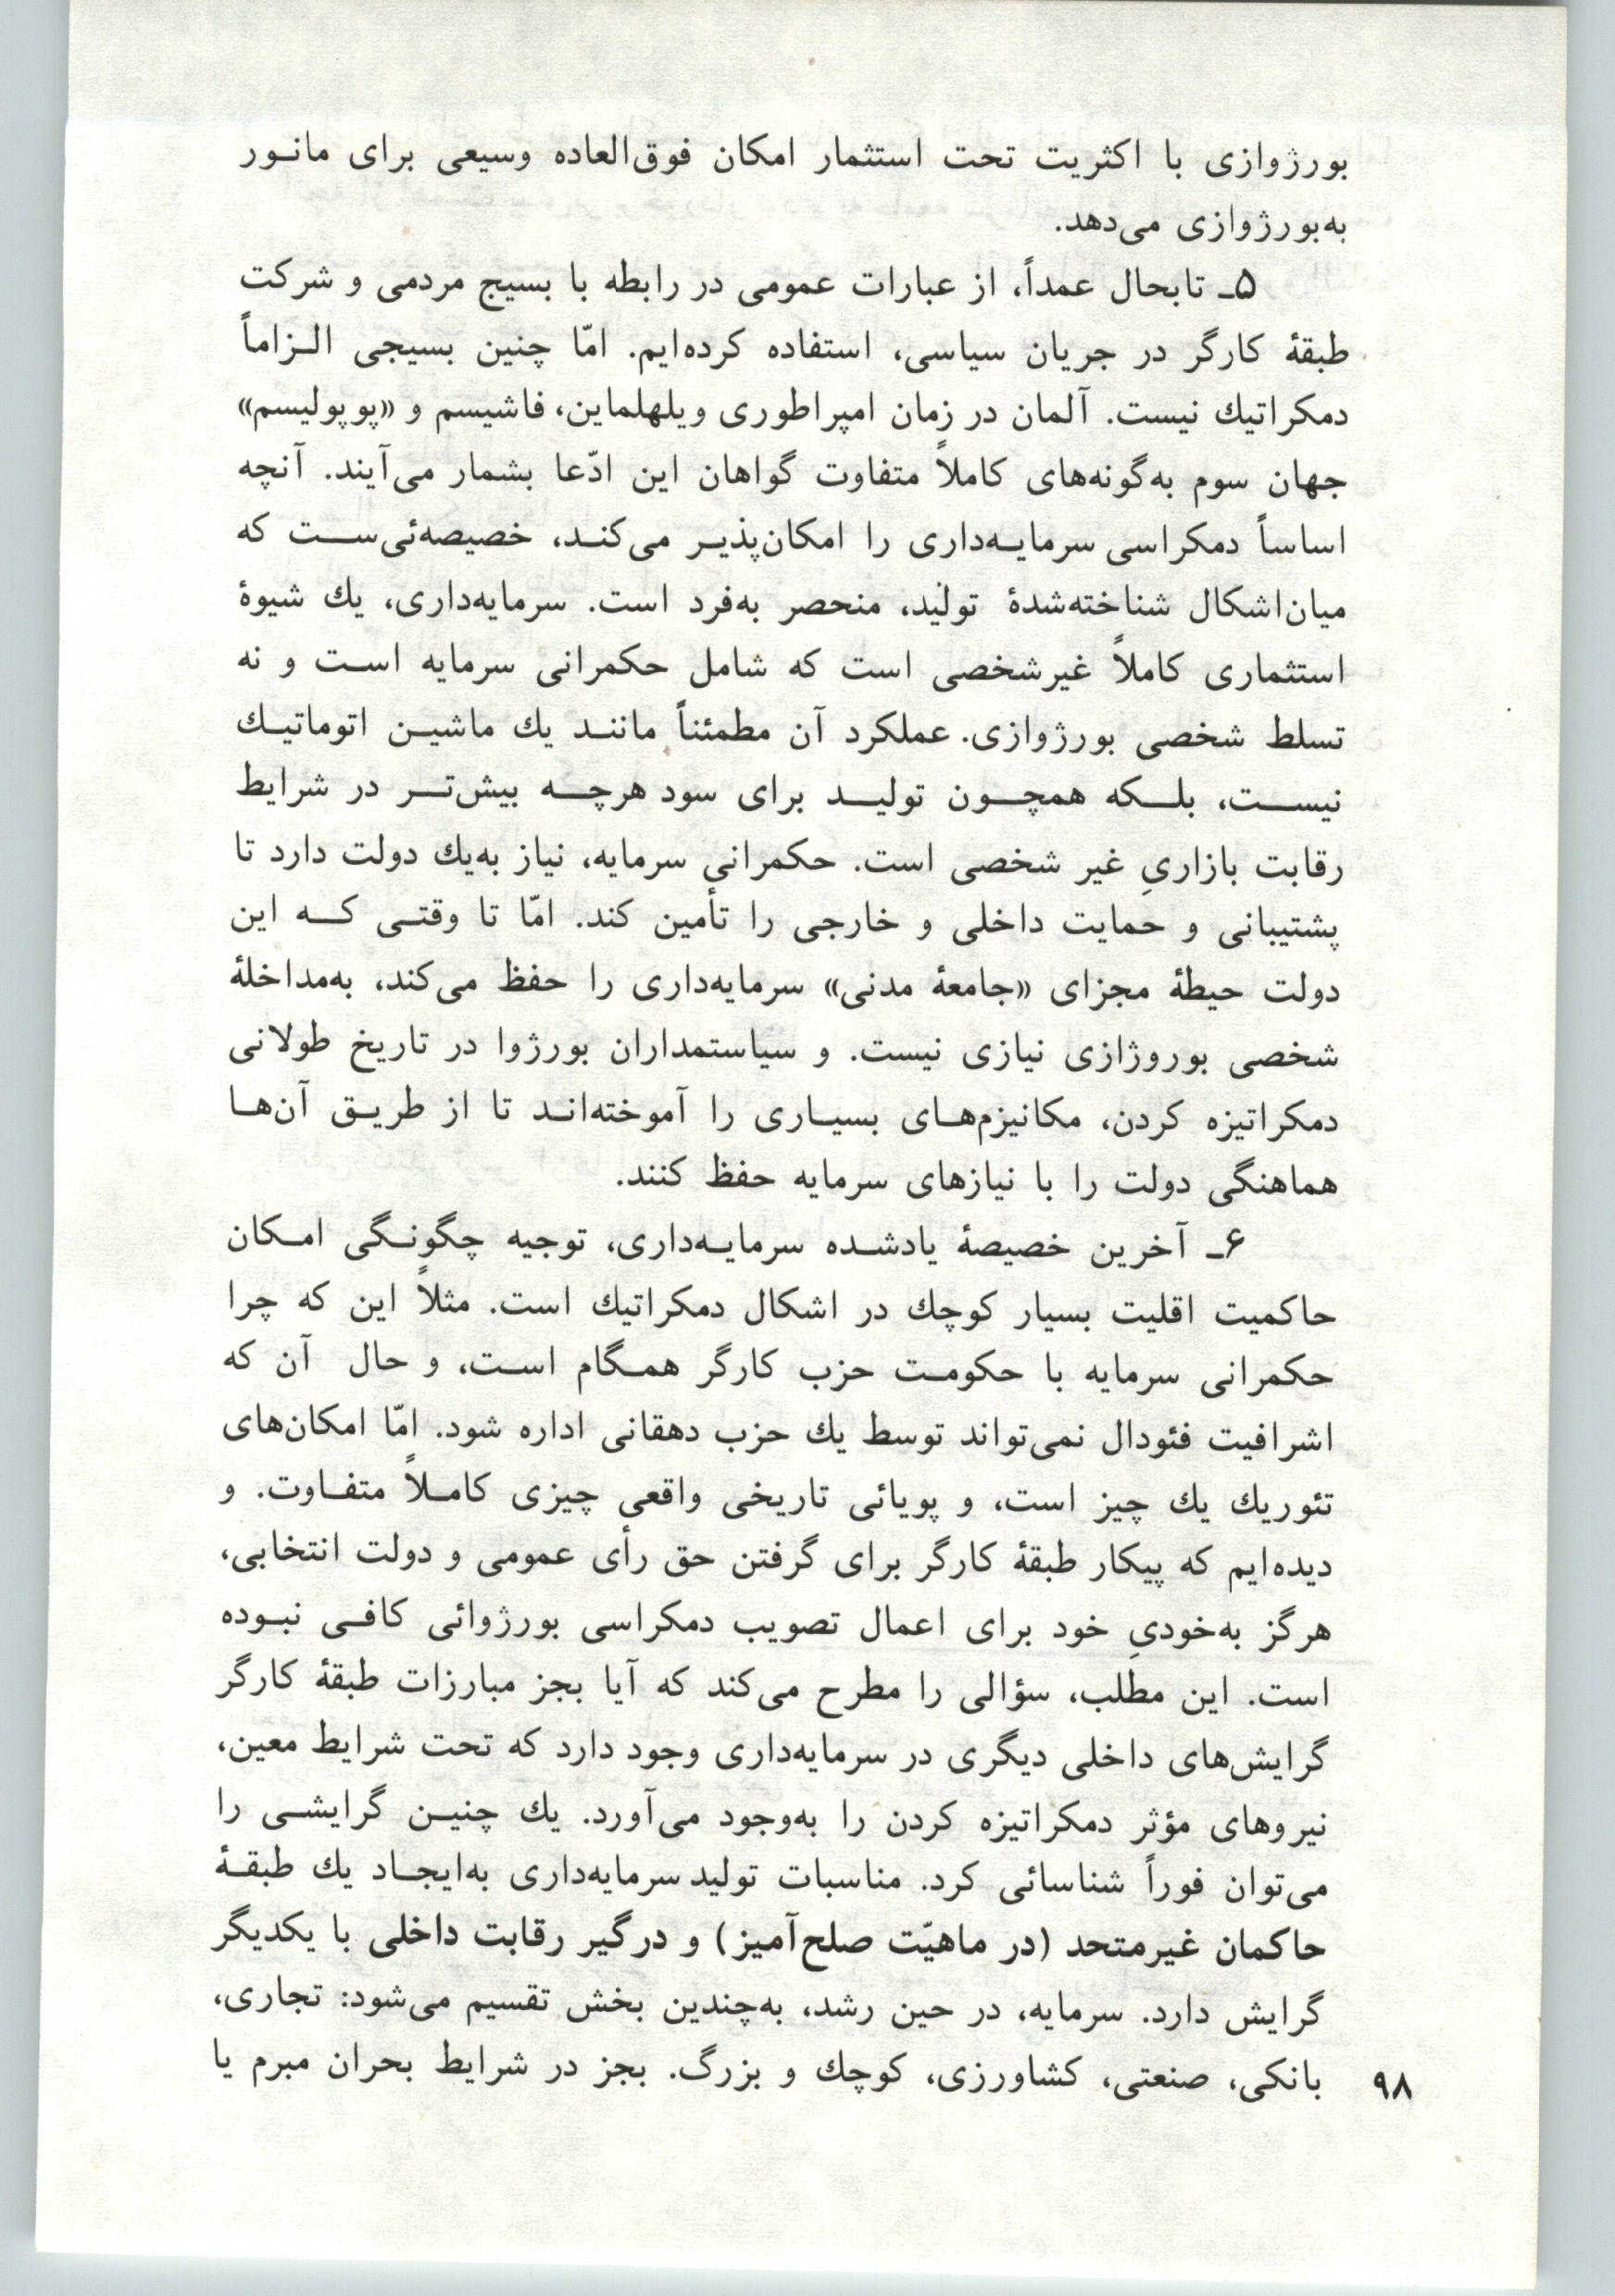 بورژوازی با اکثریت تحت استثمار امکان فوق‌العاده وسیعی برای مانور
به‌بورژوازی می‌دهد.
۵ـ تابحال عمداً، از عبارات عمومی در رابطه با بسیج مردمی و شرکت
طبقهٔ کارگر در جریان سیاسی، استفاده کرده‌ایم. امّا چنین بسیجی الزاماً
دمکراتیك نیست. آلمان در زمان امپراطوری ویلهلماین، فاشیسم و «پوپولیسم»
جهان سوم به‌گونه‌های کاملاً متفاوت گواهان این ادّعا بشمار می‌آیند. آنچه
اساساً دمکراسی سرمایه‌داری را امکان‌پذیر می‌کند، خصیصه‌ئی‌ست که
میان‌اشکال شناخته‌شدهٔ تولید، منحصر به‌فرد است. سرمایه‌داری، یك شیوهٔ
استثماری کاملاً غیرشخصی است که شامل حکمرانی سرمایه است و نه
تسلط شخصی بورژوازی. عملکرد آن مطمئناً مانند یك ماشین اتوماتیك
نیست، بلکه همچون تولید برای سود هرچه بیش‌تر در شرایط
رقابت بازاریِ غیر شخصی است. حکمرانی سرمایه، نیاز به‌یك دولت دارد تا
پشتیبانی و حمایت داخلی و خارجی را تأمین کند. امّا تا وقتی که این
دولت حیطهٔ مجزای «جامعهٔ مدنی» سرمایه‌داری را حفظ می‌کند، به‌مداخلهٔ
شخصی بوروژازی نیازی نیست. و سیاستمداران بورژوا در تاریخ طولانی
دمکراتیزه کردن، مکانیزم‌های بسیاری را آموخته‌اند تا از طریق آن‌ها
هماهنگی دولت را با نیازهای سرمایه حفظ کنند.
۶ـ آخرین خصیصهٔ یادشده سرمایه‌داری، توجیه چگونگی امکان
حاکمیت اقلیت بسیار کوچك در اشکال دمکراتیك است. مثلاً این که چرا
حکمرانی سرمایه با حکومت حزب کارگر همگام است، و حال آن که
اشرافیت فئودال نمی‌تواند توسط یك حزب دهقانی اداره شود. امّا امکان‌های
تئوریك یك چیز است، و پویائی تاریخی واقعی چیزی کاملاً متفاوت. و
دیده‌ایم که پیکار طبقهٔ کارگر برای گرفتن حق رأی عمومی و دولت انتخابی،
هرگز به‌خودیِ خود برای اعمال تصویب دمکراسی بورژوائی کافی نبوده
است. این مطلب، سؤالی را مطرح می‌کند که آیا بجز مبارزات طبقهٔ کارگر
گرایش‌های داخلی دیگری در سرمایه‌داری وجود دارد که تحت شرایط معین،
نیروهای مؤثر دمکراتیزه کردن را به‌وجود می‌آورد. یك چنین گرایشی را
می‌توان فوراً شناسائی کرد. مناسبات تولید سرمایه‌داری به‌ایجاد یك طبقهٔ
حاکمان غیرمتحد (در ماهیّت صلح‌آمیز) و درگیر رقابت داخلی با یکدیگر
گرایش دارد. سرمایه، در حین رشد، به‌چندین بخش تقسیم می‌شود: تجاری،
بانکی، صنعتی، کشاورزی، کوچك و بزرگ. بجز در شرایط بحران مبرم یا
۹۸